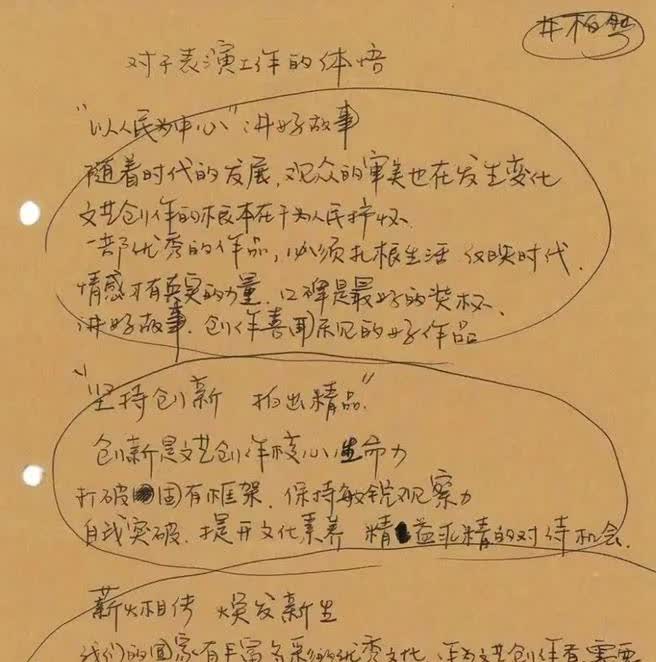 井柏然
对于表演工作的体悟
“以人民为中心”讲好故事
随着时代的发展,观众的审美也在发生变化
文艺创作的根本在于为人民抒怀、
一部优秀的作品,必须扎根生活 反映时代、
情感才有真实的力量、口碑是最好的奖杯、
讲好故事、创作喜闻乐见的好作品
“坚持创新 拍出精品”
创新是文艺创作核心生命力
打破固有框架、保持敏锐观察力
自我突破、提升文化素养 精益求精的对待机会、
薪火相传 焕发新生
我们的国家有丰富多彩的优秀文化,